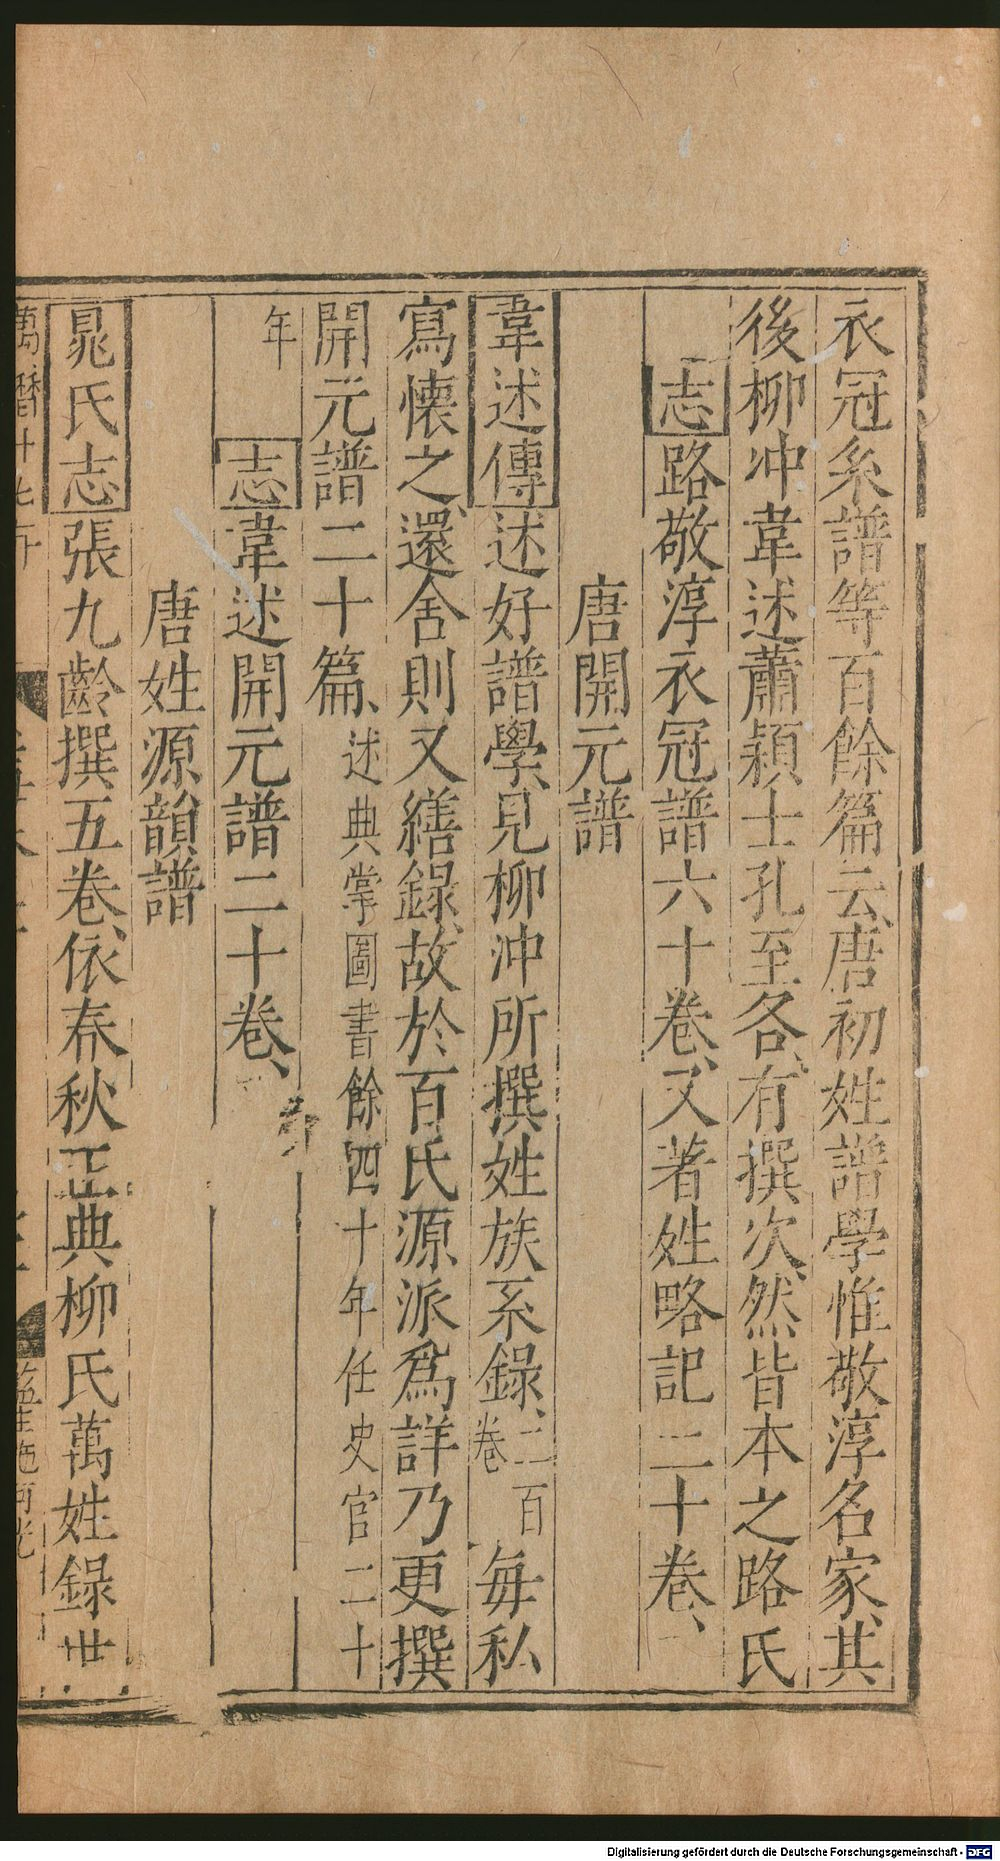 衣冠系譜等百餘篇云、唐初姓譜學惟敬淳名家、其
後柳冲韋述蕭穎士孔至各、有撰次、然皆本之路氏
志路敬淳衣冠譜六十卷、又著姓略記二十卷、
唐開元譜
韋述傳述好譜學、見柳沖所撰姓族系錄、二百卷每私
寫懐之、還舍則又繕錄、故於百氏源派爲詳乃更撰
開元譜二十篇、述典掌圖書餘四十年任史官二十
年
志韋述開元譜二十卷、
唐姓源韻譜
晁氏志張九齡撰五卷、依春秋正典柳氏萬姓錄世
萬曆十七年
Digitalisierung gefördert durch die Deutsche Forschungsgemeinschaft - DFG